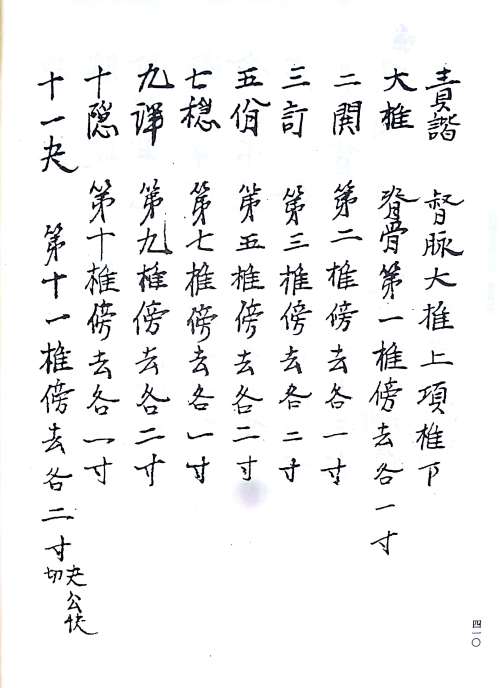 責譜 督脉大椎上項椎下
大椎 脊骨第一椎傍去各一寸
二関 第二椎傍去各一寸
三訂 第三椎傍去各二寸
五佾 第五椎傍去各二寸
七穏 第七椎傍去各一寸
九㖸 第九椎傍去各二寸
十隠 第十椎傍去各一寸
十一夬 第十一椎傍去各二寸
夬公快切
四一〇